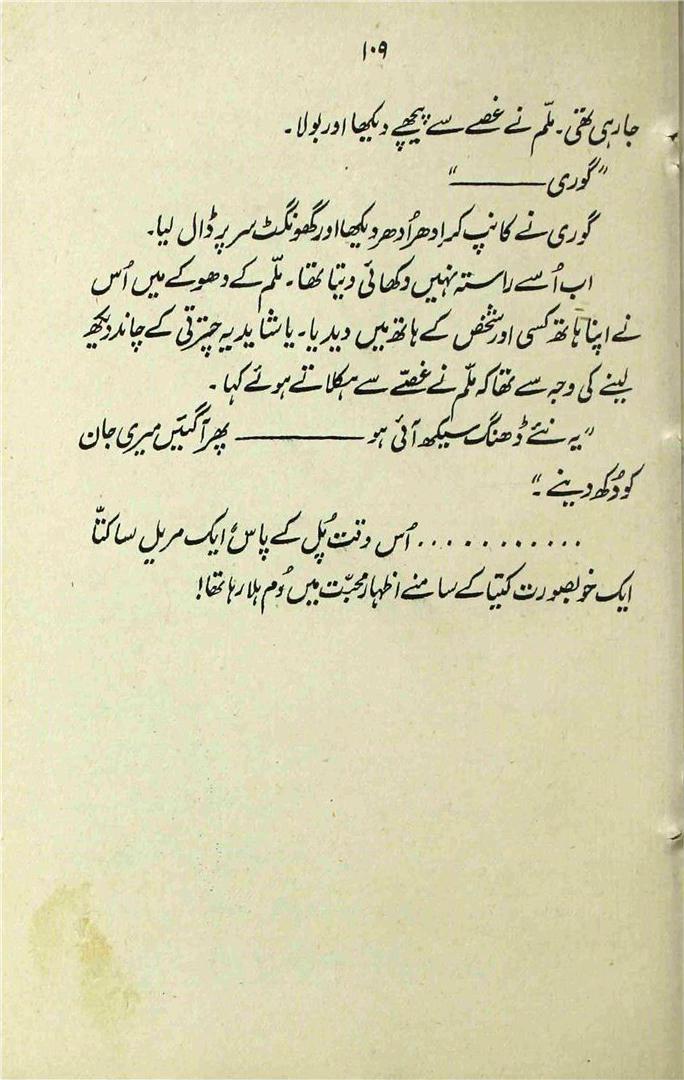 ۱۰۹
جارہی تھی۔ ملّم نے غصے سے پیچھے دیکھا اور بولا۔
"گوری ــــــــــ"
گوری نے کانپ کر ادھر اُدھر دیکھا اور گھونگٹ سر پر ڈال لیا۔
اب اُسے راستہ نہیں دکھائی دیتا تھا۔ ملّم کے دھوکے میں اُس
نے اپنا ہاتھ کسی اور شخص کے ہاتھ میں دیدیا۔ یا شاید یہ چترتی کے چاند دیکھ
لینے کی وجہ سے تھا کہ ملّم نے غصّے سے ہکلاتے ہوئے کہا۔
"یہ نئے ڈھنگ سیکھ آئی ہو ــــــــــ پھر آگئیں میری جان
کو دُکھ دینے۔"
........... اُس وقت پُل کے پاس ایک مریل سا کتّا
ایک خوبصورت کتیا کے سامنے اظہارِ محبّت میں دُم ہلا رہا تھا!